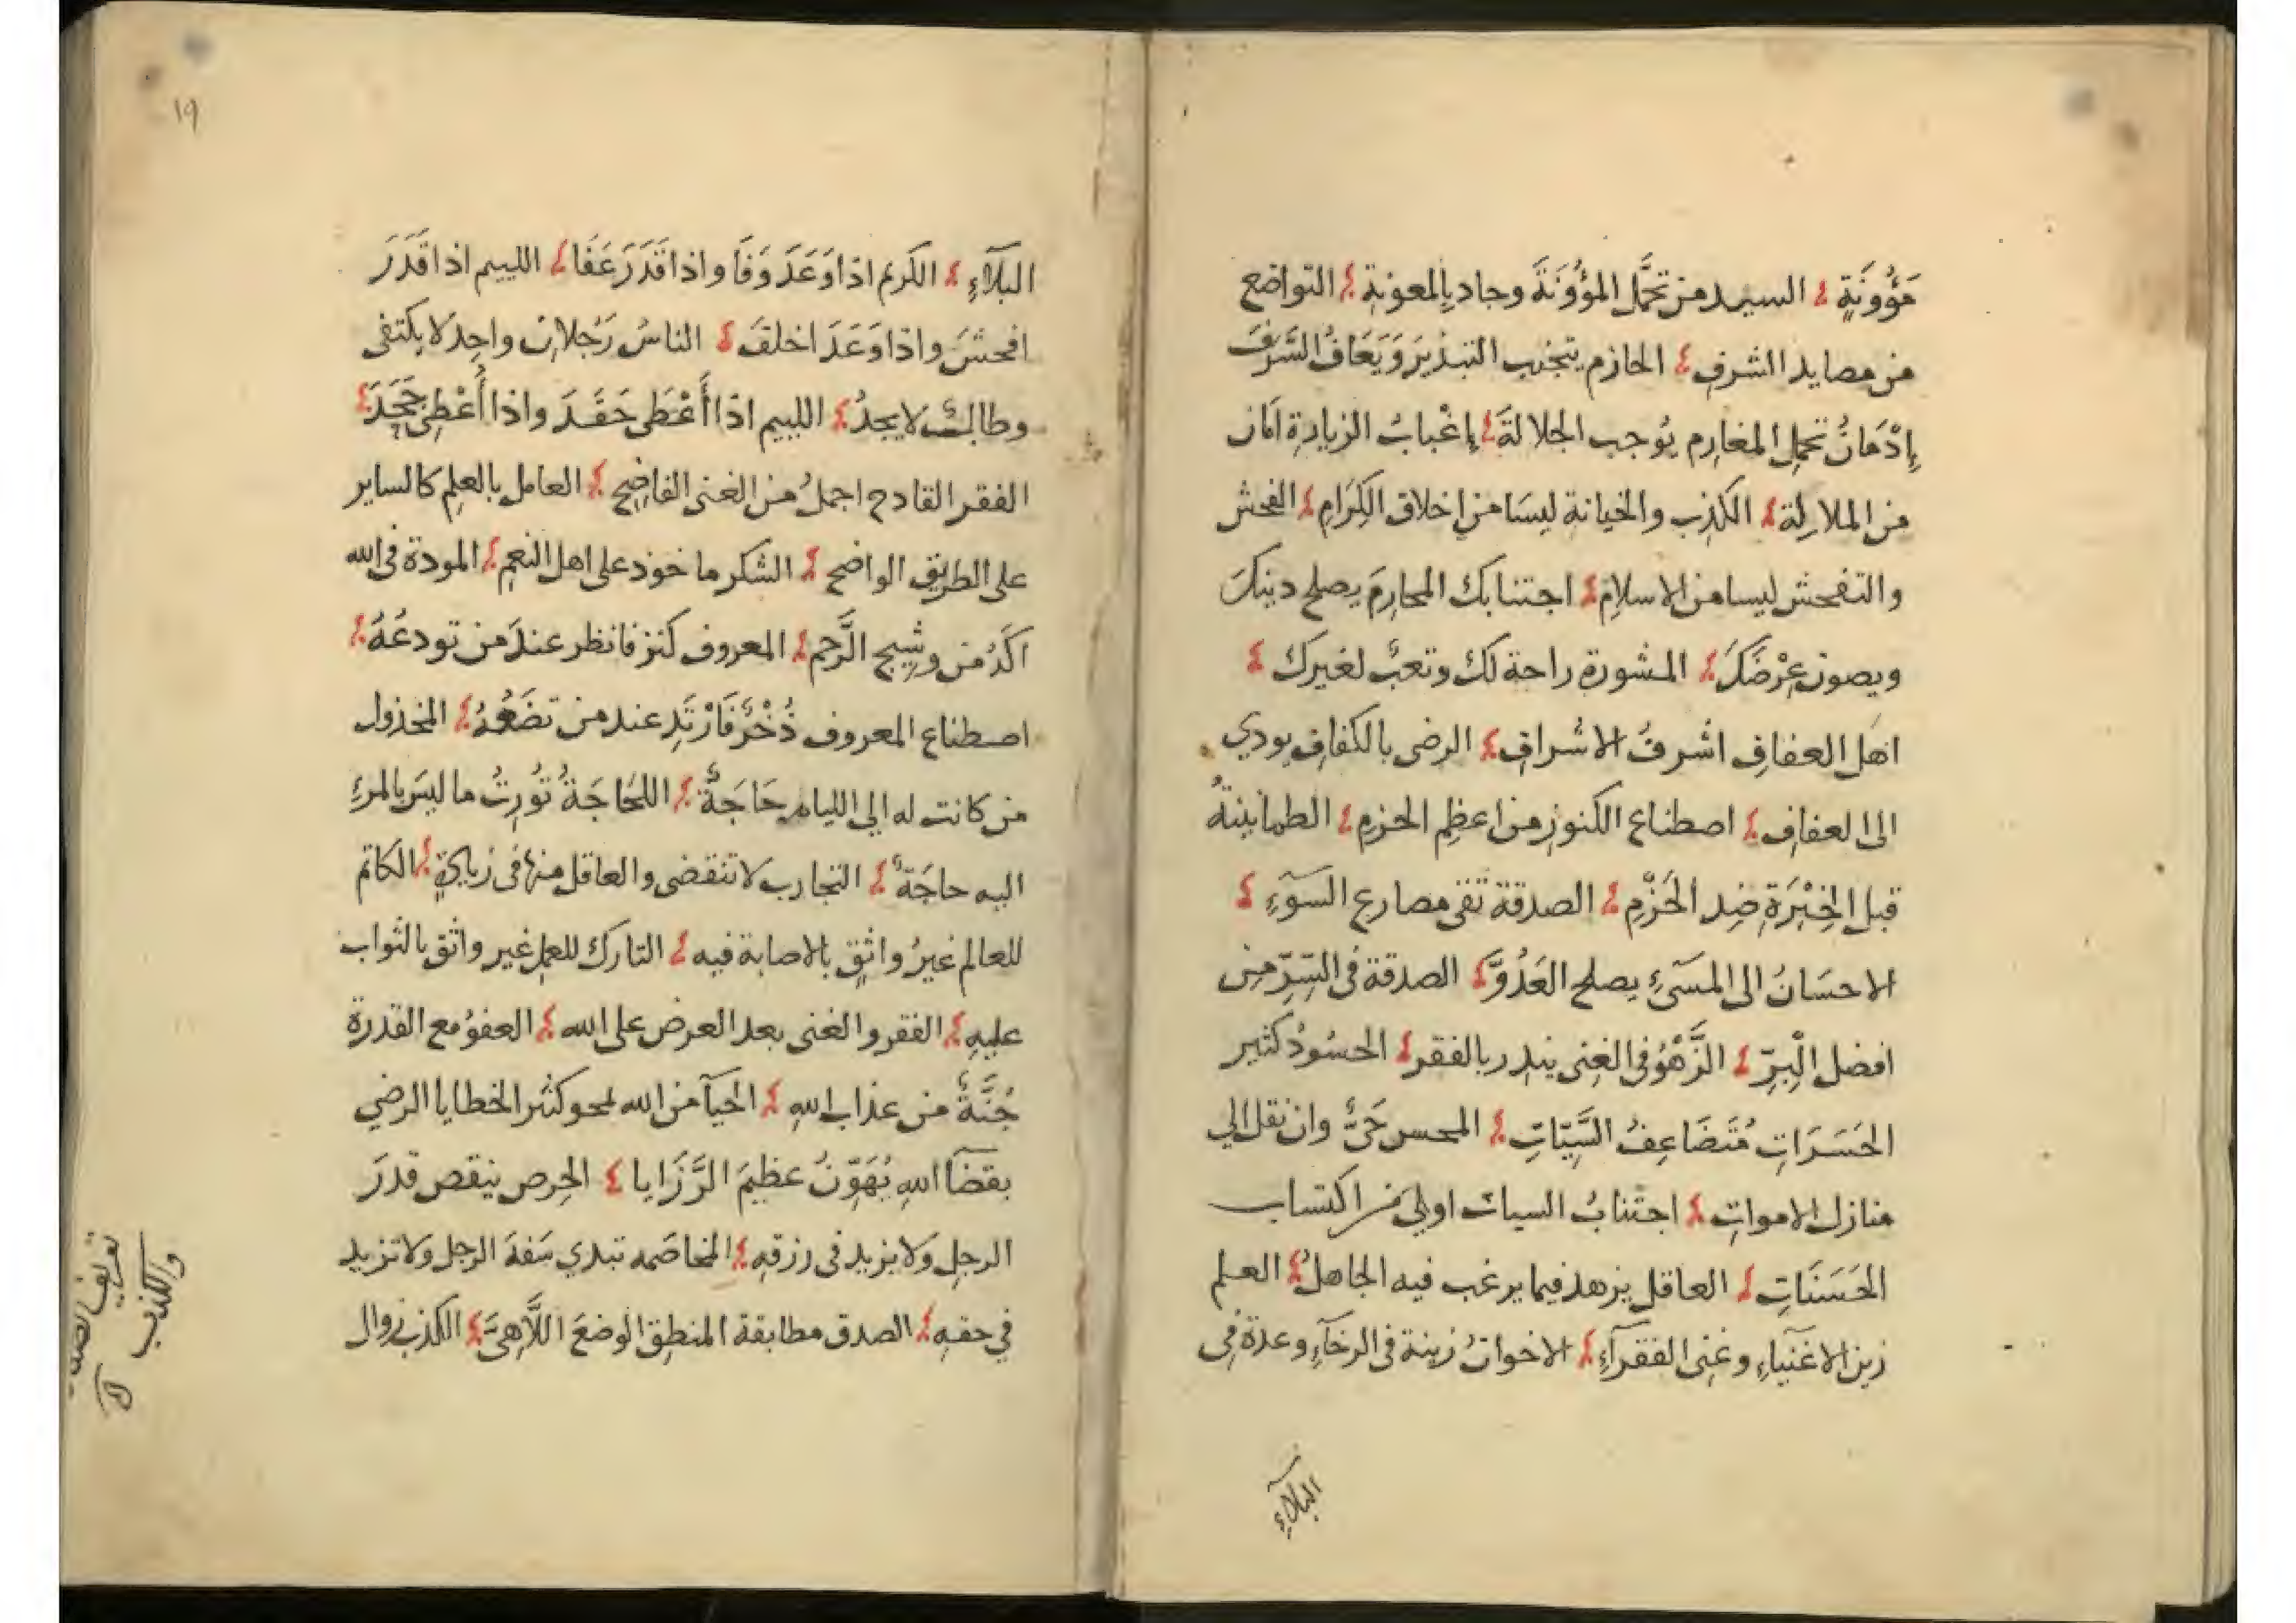 مَؤُونَةٍ السيد من تحمَّل المؤُونَةَ وجاد بالمعونةِ التواضع
من مصايد الشرفِ الحازم يتجنب التبذيرَ وَيَعَافُ السَّرفَ
إِدْمَانُ تحملِ المغارِم يُوجب الجلالةَ إِغْبابُ الزيارةِ امَان
من الملالة الكذب والخيانة ليسَا من اخلاق الكِرَامِ الفحش
والتفحش ليسا من الاسلامِ اجتنابك المحارِمَ يصلح دينكَ
ويصون عِرْضَكَ المشورة راحة لك وتعبٌ لغيرك
اهَل العفافِ اشرفُ الاشرافِ الرضى بالكفافِ يودي
الى العفافِ اصطناع الكنوزِ من اعظمِ الحزمِ الطمانينةُ
قبل الخِبْرَةِ ضِد الحَزْمِ الصدقة تقى مصارع السَوءِ
الاحسَانُ الى المسَئِ يصلح العَدُوَّ الصدقة فى السِّرِّ مِن
افضل الْبِرِّ الزَّهْوُ فى الغِنى ينذِر بالفقر الحسُودُ كثير
الحَسَرَاتِ مُتَضَاعِفُ السَّيِّاتِ المحسن حَىٌّ وان نقل الي
منازل الامواتِ اجتنابُ السيات اولى من اكتساب
الحَسَنَاتِ العاقل يزهد فيما يرغب فيه الجاهلُ العلم
زين الاغنياءِ وغِنى الفقرآءِ الاخوانُ زينة فى الرخآءِ وعدة فى
البلآءِ
١٩
البلآءِ الكريم اذا وَعَدَ وَفَا واذا قَدَرَ عَفَا اللييم اذا قَدَرَ
افحشَ واذا وَعَدَ اخلفَ الناسُ رَجُلانِ واجِد لا يكتفى
وطالبٌ لا يجدُ اللييم اذا أَعْطَى حَقَدَ واذا أُعْطِىَ جَحَدَ
الفقر القادح اجملُ من الغنى الفاضِحِ العامل بالعلمِ كالساير
على الطريق الواضحِ الشكر ماخوذ على اهل النعمِ المودة فى الله
اكَدُ من وشِيج الرَّحِمِ المعروف كنز فانظر عندَ من تودعَهُ
اصطناع المعروف ذُخْرٌ فَارْتَدِ عند من تضَعُهُ المخذول
من كانت له الى الليام حَاجَةٌ اللجَاجَةُ تُورِثُ ما ليسَ بالمرءِ
اليه حاجَةٌ التجارب لا تنقضى والعاقل منها فى زيادةٍ الكاتم
للعالم غيرُ واثِقٍ بالاصابة فيه التارك للعمل غير واثق بالثواب
عليهِ الفقر والغنى بعد العرض على الله العفوُ مع القدرة
جُنَّةٌ من عذاب اللهِ الحيآ من الله لمحو كثير الخطايا الرضي
بقضآ اللهِ يُهَوِّنُ عظيمَ الرَّزَايا الحِرص ينقص قدرَ
الرجلِ وَلا يزيد فى رزقهِ المخاصَمه تبدي سَفهَ الرجل ولا تزيد
في حقهِ الصدق مطابقة المنطِق الوضعَ اللَّاهِىَ الكذب زوال
تعريف الصدق
والكذب